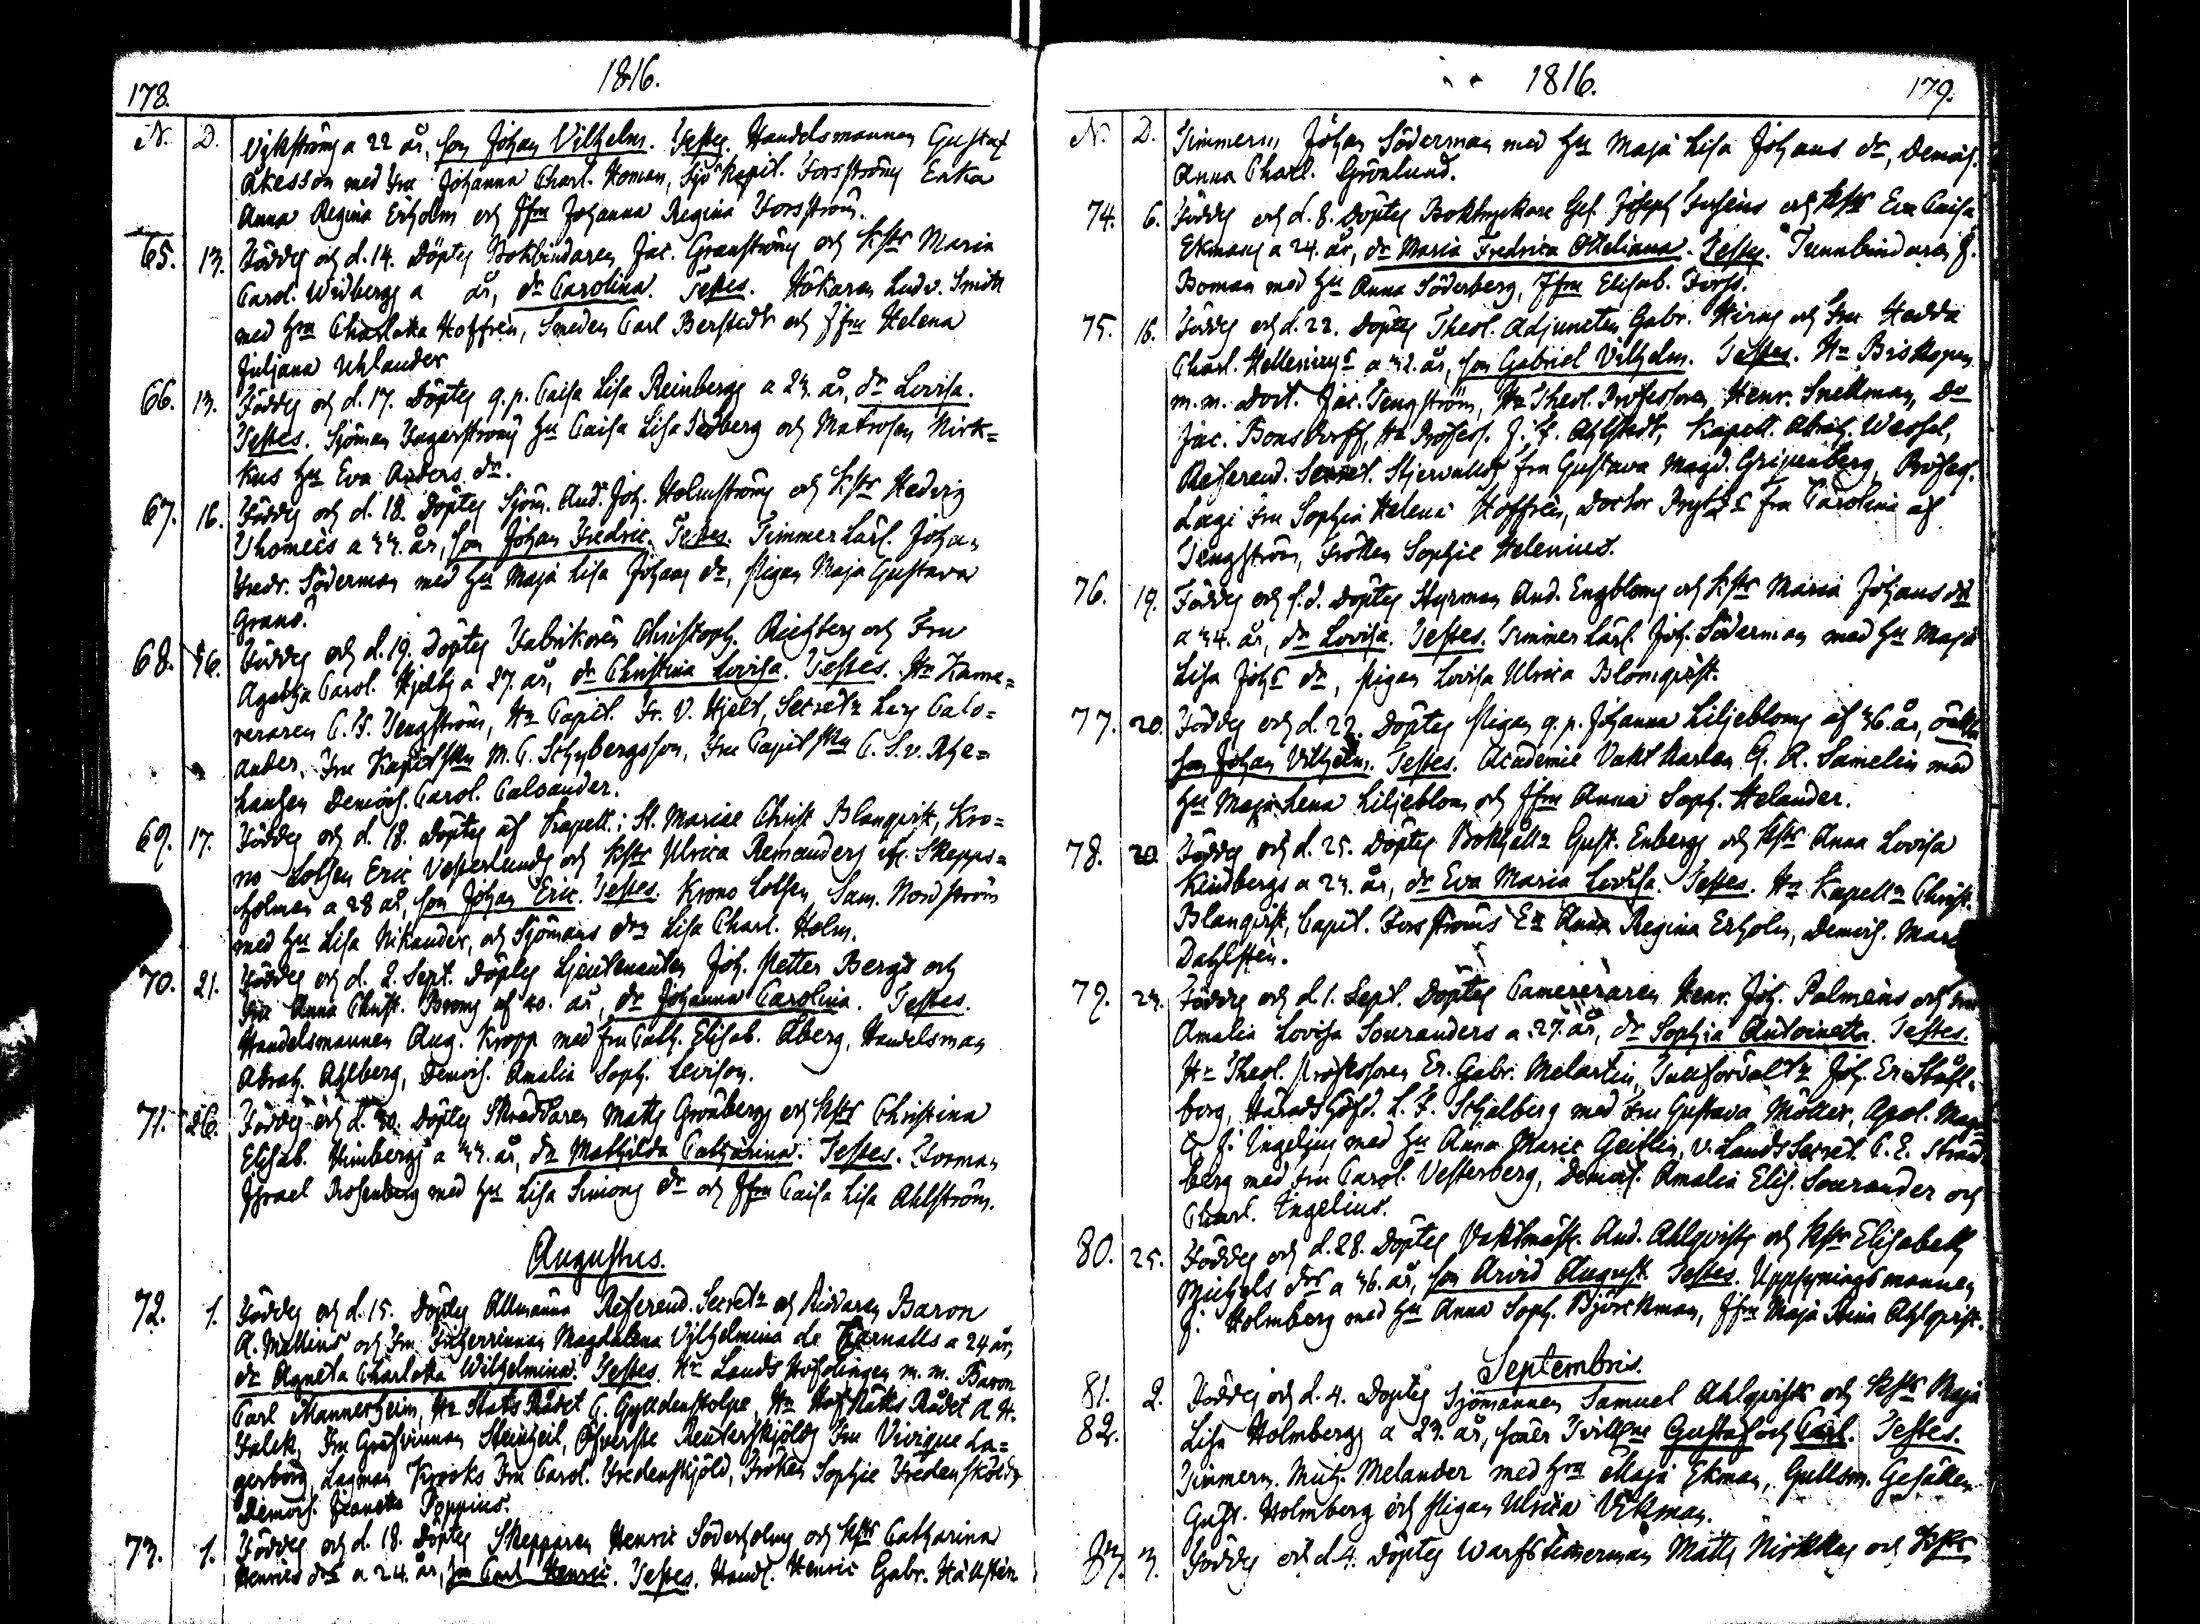 178.
1816.
N. D.
Vikström a 22 år, son Johan Vilhelm. Testes. Handelsmannen Gustaf
Åkesson med Fru Johanna Charl. Homan, Sjö Kapit. Forsström Enka
Anna Regina Erholm och Jfru Johanna Regina Forsström.
65. 13. Föddes och d. 14. Döptes Bokbindaren Jac. Granströms och Hstr Maria
Carol. Widbergs a år, dr Carolina. Testes. Hökaren Ludv. Smitt
med Hru Charlotta Hoffrén, Smeden Carl Berstedt och Jfru Helena
Juliana Uhlander
66. 13. Föddes och d. 17. Döptes q.p. Caisa Lisa Reinbergs a 23 år, dr Lovisa.
Testes. Sjöman Fagerströms Hu Caisa Lisa Sedberg och Matrosen Nirk=
kus Hu Eva Anders dr.
67. 16. Föddes och d. 18. Döptes Sjöm. And. Joh. Holmströms och Hstr Hedvig
Thomeés a 33. år, son Johan Fredric. Testes. Timmerkarl. Johan
Fredr. Söderman med Hu Maja Lisa Johans dr, Pigan Maja Gustava
Grans.
68. 16. Föddes och d. 19. Döptes Fabrikören Christoph. Richters och Fru
Agatha Carol. Hjelts a 27. år, dr Christina Lovisa. Testes. Hr Kame=
reraren C. F. Tengström, Hr Capit. Fr. V. Hjelt, Secretr Lars Calo=
ander, Fru Kapitskan M. C. Schybergsson, Fru Capitskn C. S. v. Rhe=
hausen Demois. Carol. Caloander.
69. 17. Föddes och d. 18. Döptes af Kapell. i St. Mariae Christ Blanqvist, Kro=
no Lotsen Eric Vesterlunds och Hstr Ulrica Remanders ifr. Skepps=
holmen a 28 år, son Johan Eric. Testes. Krono Lotsen Sam. Nordström
med Hu Lisa Nikander, och Sjömans drn Lisa Charl. Holm.
70. 21. Föddes och d. 2. Sept. Döptes Lieutenanten Joh. Petter Bergs och
Fru Anna Christ. Broms af 40. år, dr Johanna Carolina. Testes.
Handelsmannen Aug. Kropp med Fru Cath. Elisab. Åberg, Handelsman
Abrah. Ahlberg, Demois. Amalia Soph. Levison.
71. 26. Föddes och d. 30. Döptes Skräddaren Matts Grönbergs och Hstr Christina
Elisab. Himbergs a 33. år, dr Mathilda Catharina. Testes. Forman
Israel Rosenberg med Hu Lisa Simons dr och Jfru Caisa Lisa Ahlström.
Augustus.
72. 1. Föddes och d. 15. Döptes Allmänna Referend. Secretr och Riddaren Baron
A. Mellins och Fru Friherrinnan Magdalena Vilhelmina de Carnalls a 24 år,
dr Agneta Charlotta Wilhelmina. Testes. Hr Lands Höfdingen m. m. Baron
Carl Mannerheim, Hr Stats Rådet C. Gyldenstolpe, Hr Hof Rätts Rådet A. H.
Falck, Fru Grefvinnan Steinheil, Öfverste Reuterskjölds Fru Vivique La=
gerborg, Lagman Krooks Fru Carol. Fredenskjöld, Fröken Sophie Fredensköld,
Demois. Jeanette Poppius.
73. 1. Föddes och d. 18. Döptes Skepparen Henric Söderholms och Hstr Catharina
Henrics drs a 24. år, son Carl Henric. Testes. Handl. Henric Gabr. Hällstén
1816.
179.
N. D.
Timmerm. Johan Söderman med Hu Maja Lisa Johans dr, Demois.
Anna Charl. Grönlund.
74. 6. Föddes och d. 8. Döptes Boktryckare Ges. Joseph Fuséns och Hstr Eva Caisa
Ekmans a 24. år, dr Maria Fredrica Otteliana. Testes. Tunnbindaren J.
Boman med Hu Anna Söderberg, Jfru Elisab. Forss.
75. 16. Föddes och d. 22. Döptes Theol. Adjuncten Gabr. Hirns och Fru Hedda
Charl. Hellenius a 32. år, son Gabriel Vilhelm. Testes. Hr Biskopen
m. m. Doct. Jac. Tengström, Hr Theol. Professoren Henr. Snellman, Dr
Jac. Bonsdorff, Hr Profess. J. F. Ahlstedt, Kapell. Abrah. Wessel,
Referend. Secret. Stjernvalls Fru Gustava Magd. Gripenberg, Profess.
Laegi Fru Sophia Helena Hoffrén, Doctor Prytz s Fru Carolina af
Tengström, Fröken Sophie Helenius.
76. 19. Föddes och s. d. Döptes Styrman And. Engbloms och Hstr Maria Johans drs
a 34. år, dr Lovisa. Testes. Timmerkarl. Joh. Söderman med Hu Maja
Lisa Johs dr, Pigan Lovisa Ulrica Blomqvist.
77. 20. Föddes och d. 22. Döptes Pigan q.p. Johanna Liljebloms af 36. år, oäkta
son Johan Vilhelm. Testes. Academie Vaktkarlen G. A. Samelin med
Hu Maja Lena Liljeblom och Jfru Anna Soph. Helander.
78. 20. Föddes och d. 25. Döptes Bokhållr Gust. Enbergs och Hstr Anna Lovisa
Kindbergs a 23. år, dr Eva Maria Lovisa. Testes. Hr Kapelln Christ.
Blanqvist, Capit. Forsströms Ea Anna Regina Erholm, Demois. Mari
Dahlstén.
79. 23. Föddes och d. 1. Sept. Döptes Camereraren Henr. Joh. Palméns och Fru
Amalia Lovisa Souranders a 27. år, dr Sophia Antoinetta. Testes.
Hr Theol. Professoren Er. Gabr. Melartin, Tullförvaltr Joh. Er. Stål=
berg, Häradshöfd. L. F. Schalberg med Fru Gustava Möller, Apol. Mag.
G. J. Ingelius med Hu Anna Maria Geitlin, V. Lands Secret. C. E. Strand
berg med Fru Carol. Vesterberg, Demois. Amalia Elis. Sourander och
Charl. Ingelius.
80. 25. Föddes och d. 28. Döptes Vaktmäst. And. Ahlqvists och Hstr Elisabeth
Michels drs a 36. år, son Arvid August. Testes. Uppsyningsmannen
J. Holmberg med Hu Anna Soph. Björckman, Jfru Maja Stina Ahlqvist.
Septembris.
81. 2. Föddes och d. 4. Döptes Sjömannen Samuel Ahlqvists och Hstr Maja
82. Lisa Holmbergs a 23. år, söner Tvillne Gustaf och Carl. Testes.
Timmerm. Mich. Melander med Hru Maja Ekman, Gullsm. Gesällen
Gust. Holmberg och Pigan Ulrica Vikman.
83. 3. Föddes och d. 4. Döptes Warfs timerman Matts Nirkkus och Hstr